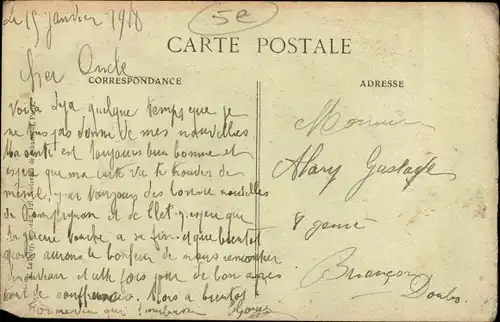 Le 15 Janvier 1918
5e
CARTE POSTALE
Cher Oncle
CORRESPONDANCE
ADRESSE
Voila deja quelque temps que je
ne vous pas donné de mes nouvelles
Ma santé est toujours bien bonne et
espere que ma carte va te trouver de
même. j'ai toujours des bonne nouvelles
de et de espere que
la guerre touche a sa fin et que bientot
nous aurons le bonheur de nous rencontrer
a nouveau et cette fois pour de bon apres
tant de souffrances Alors a bientot
Ton neveu qui t'embrasse
Monsieur
Alary Gustave
8 genie
Besançon
Doubs.